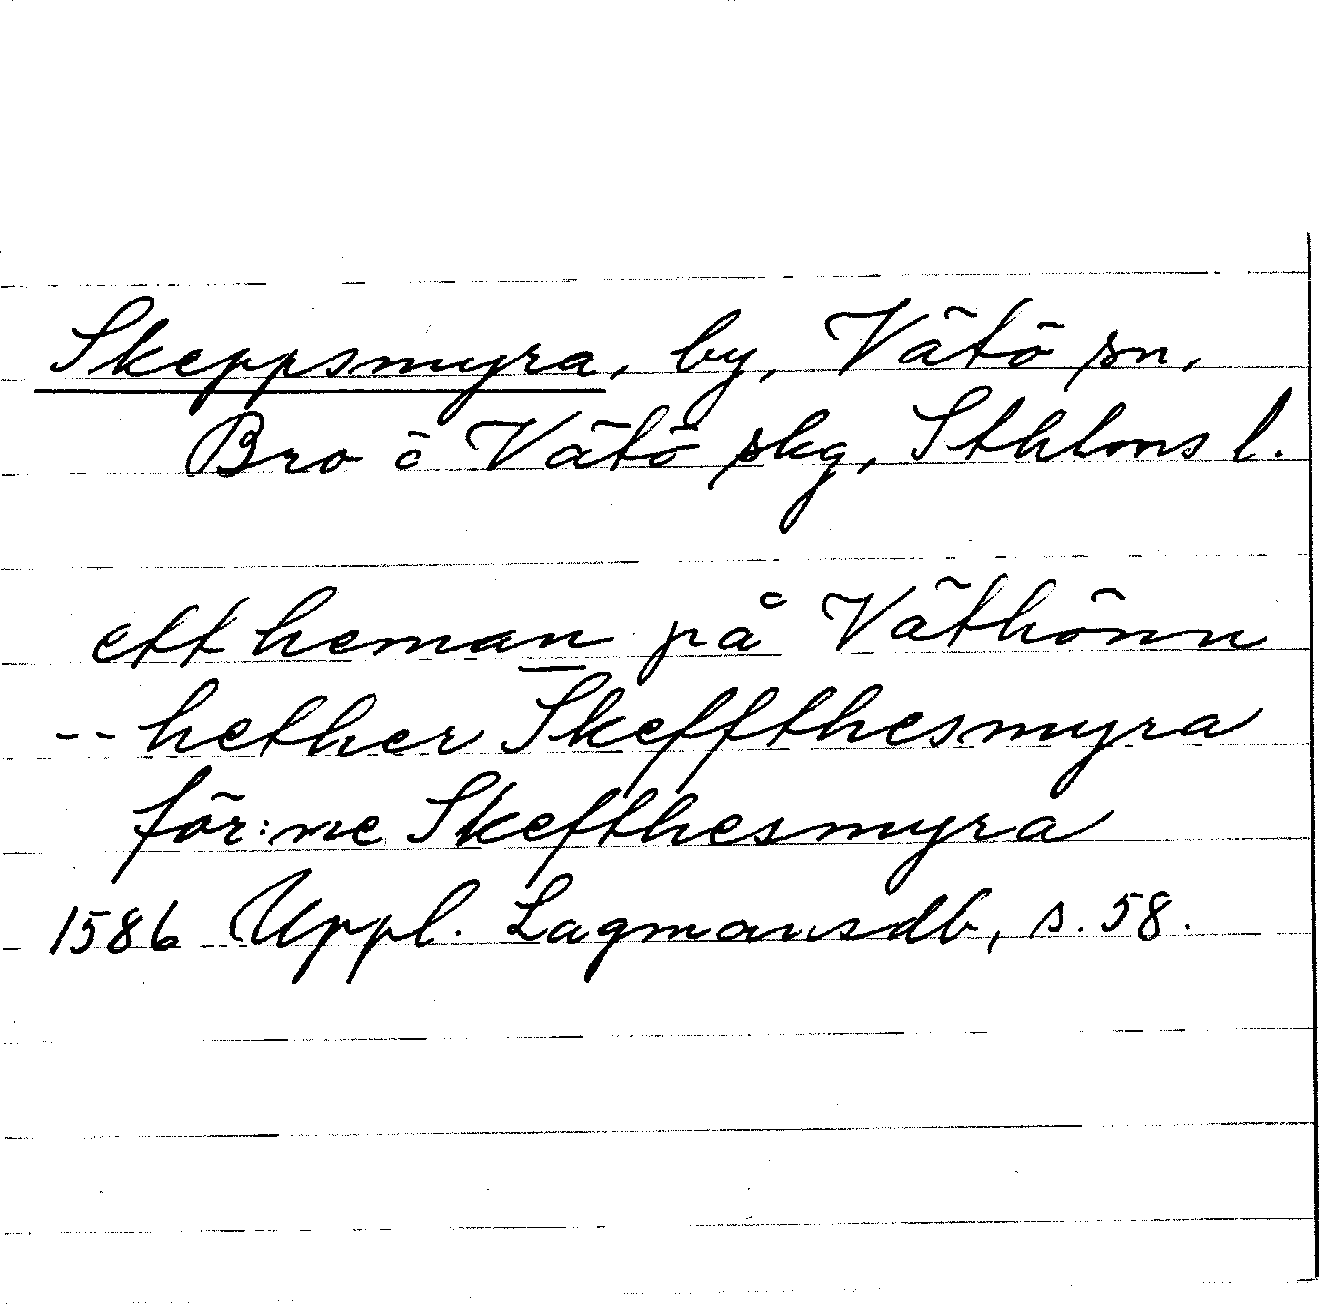 Skeppsmyra, by, Vätö sn,
Bro o Vätö skg, Sthlms l.
ett heman på Väthönn
-- hether Skeffthesmyra
för:ne Skefthesmyra
1586 Uppl. Lagmansdb, s. 58.